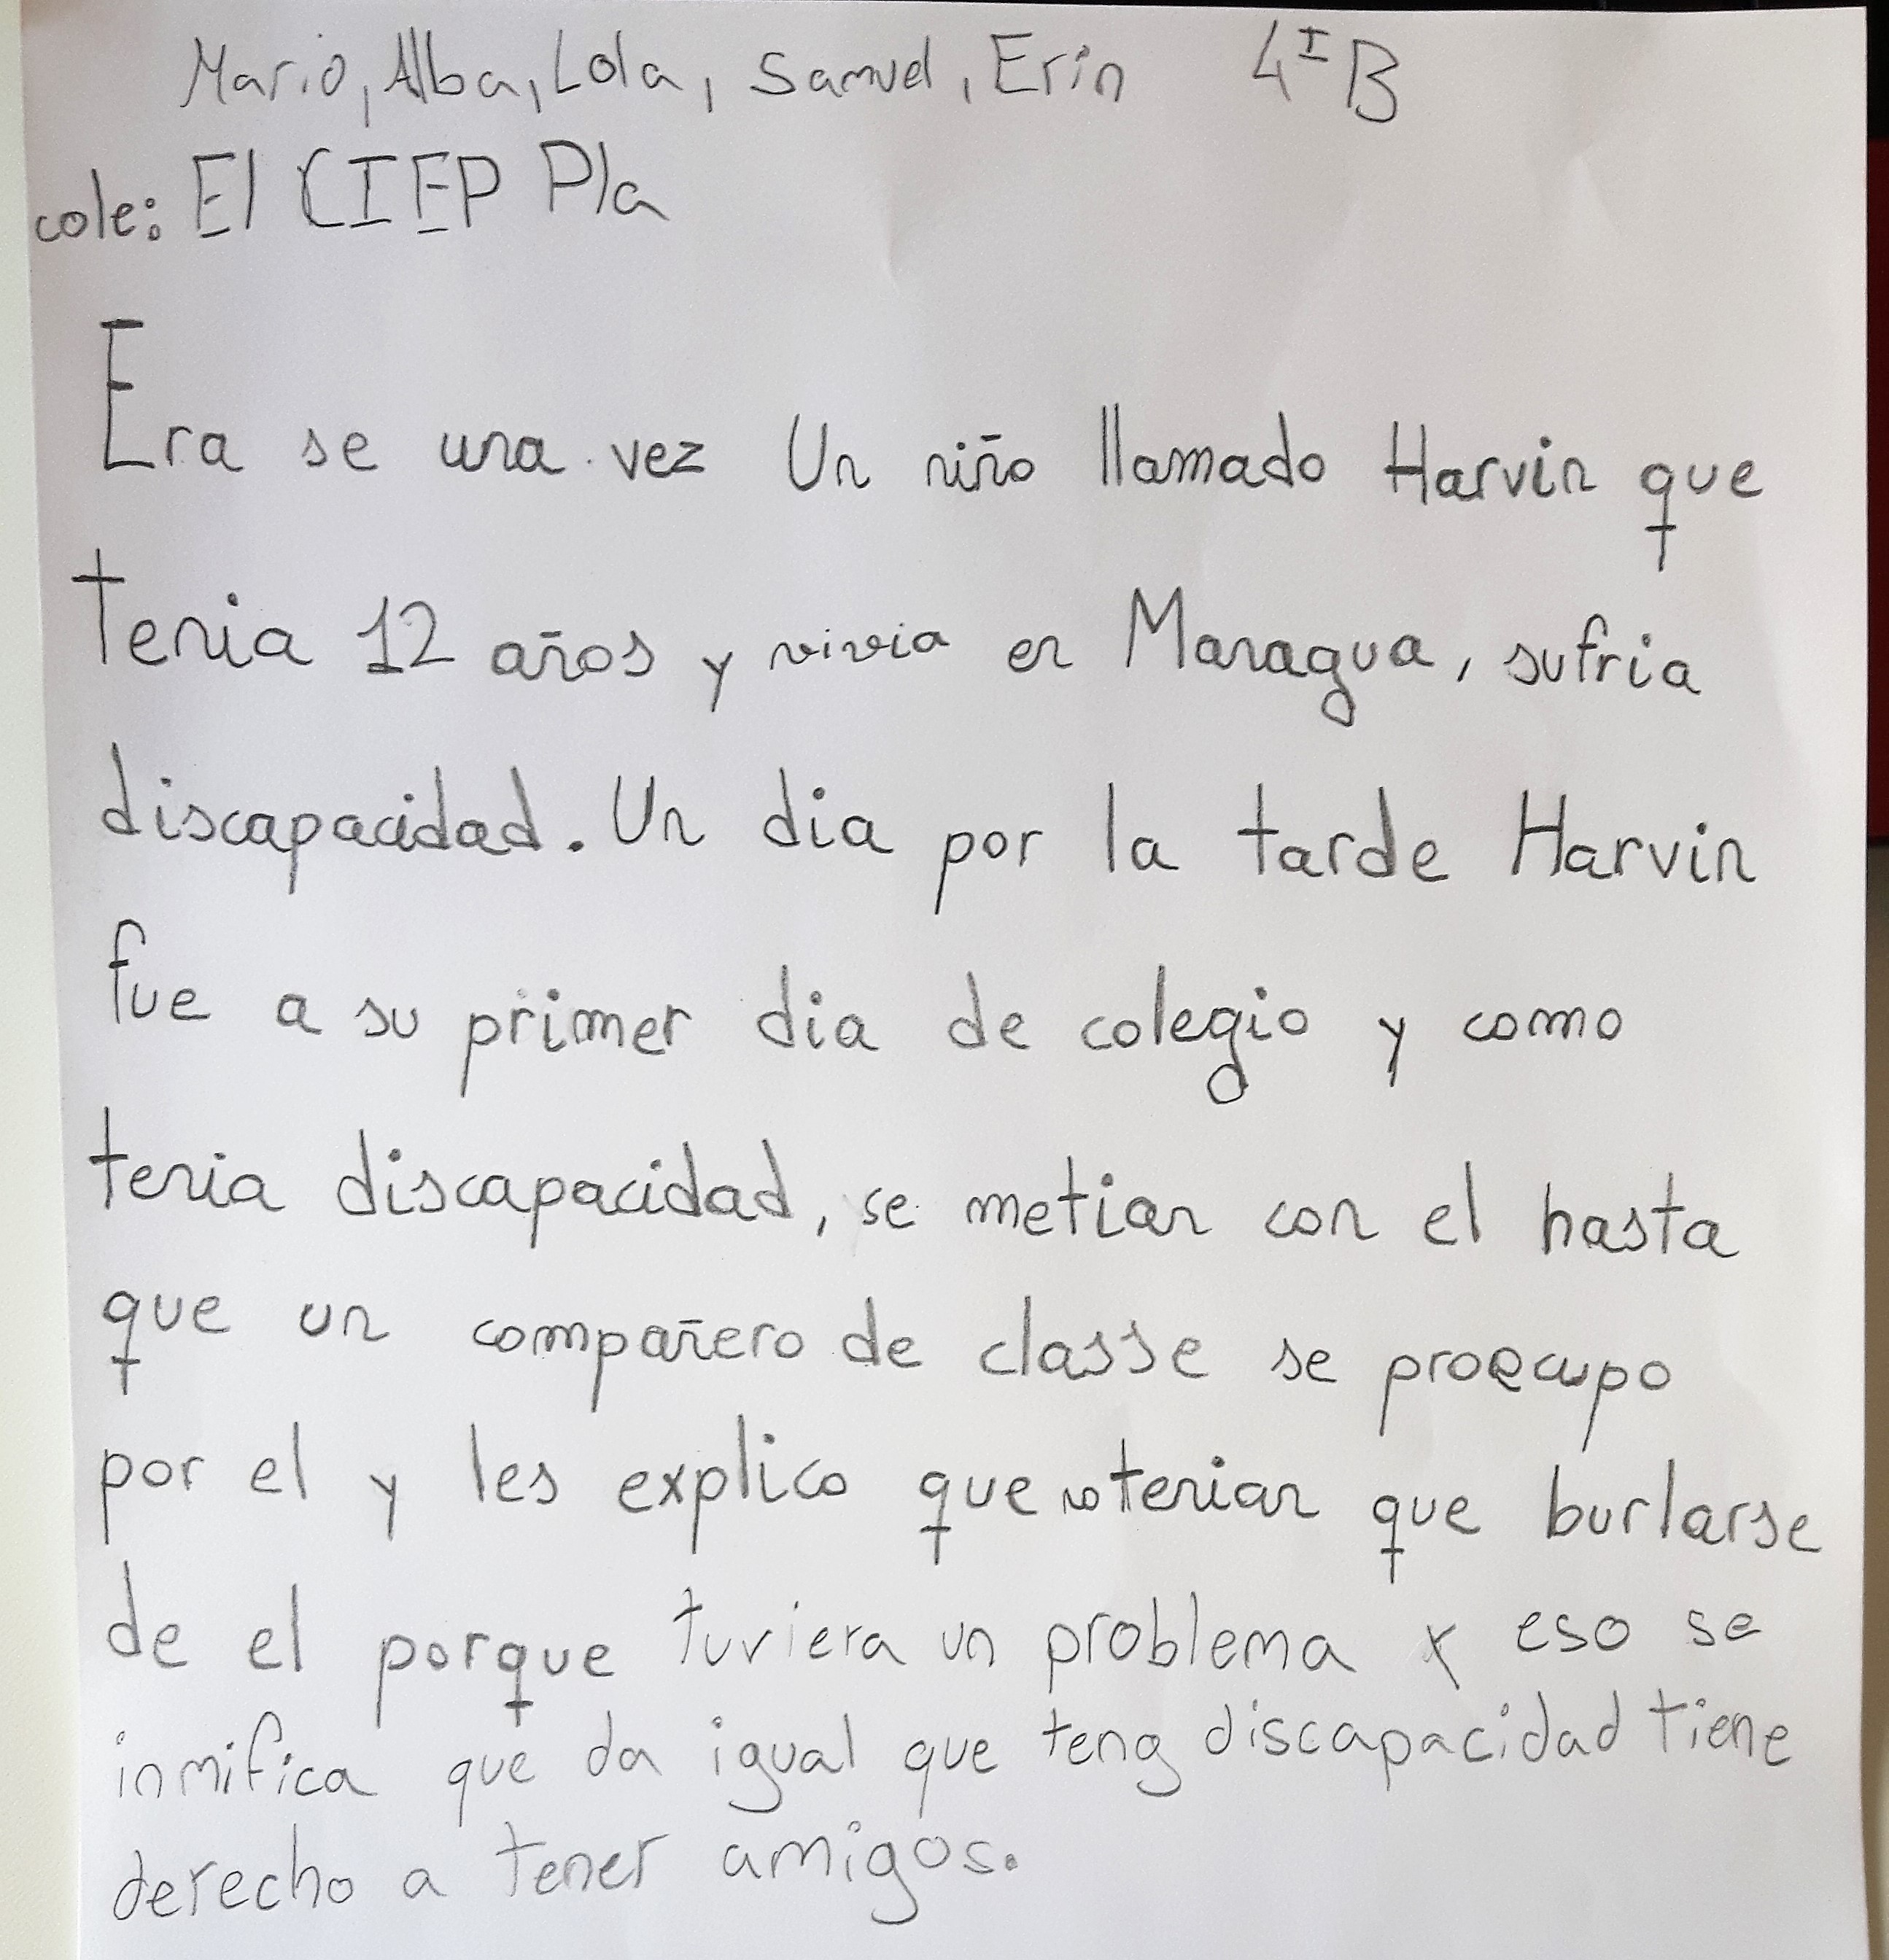 Mario, Alba, Lola, Samuel, Erin 4ºB
cole: El CIEP Pla
Era se una vez Un niño llamado Harvin que
tenia 12 años y vivia en Managua, sufria
discapacidad. Un dia por la tarde Harvin
fue a su primer dia de colegio y como
tenia discapacidad, se metian con el hasta
que un compañero de classe se proecupo
por el y les explico que no tenian que burlarse
de el porque tuviera un problema x eso se
inmifica que da igual que teng discapacidad tiene
derecho a tener amigos.